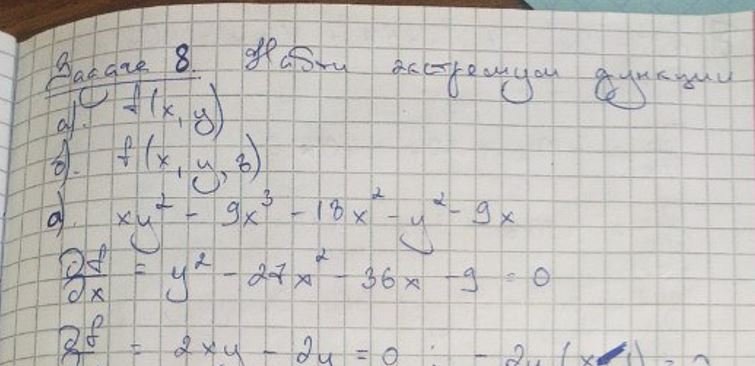 Задача 8. Найти экстремум функции
а). f(x, y)
б). f(x, y, z)
а). xy² - 9x³ - 18x² - y² - 9x
∂f/∂x = y² - 27x² - 36x - 9 = 0
∂f = 2xy - 2y = 0; 2y(x - 1) = 0